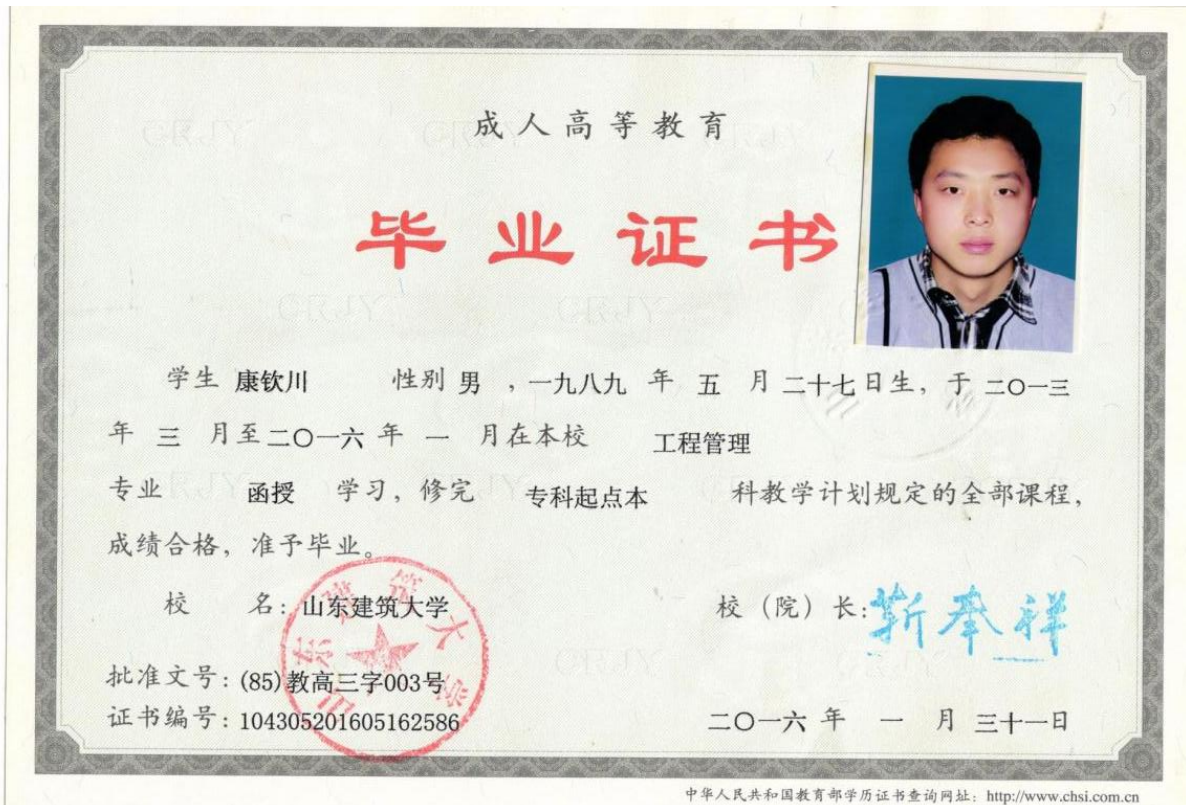 成人高等教育
毕业证书
学生 康钦川 性别 男 ，一九八九 年 五 月 二十七日生，于 二〇一三
年 三 月至二〇一六 年 一 月在本校 工程管理
专业 函授 学习，修完 专科起点本 科教学计划规定的全部课程，
成绩合格，准予毕业。
校 名：山东建筑大学
校（院）长：靳奉祥
批准文号：(85)教高三字003号
证书编号：104305201605162586
二〇一六 年 一 月 三十一日
山东建筑大学
中华人民共和国教育部学历证书查询网址：http://www.chsi.com.cn